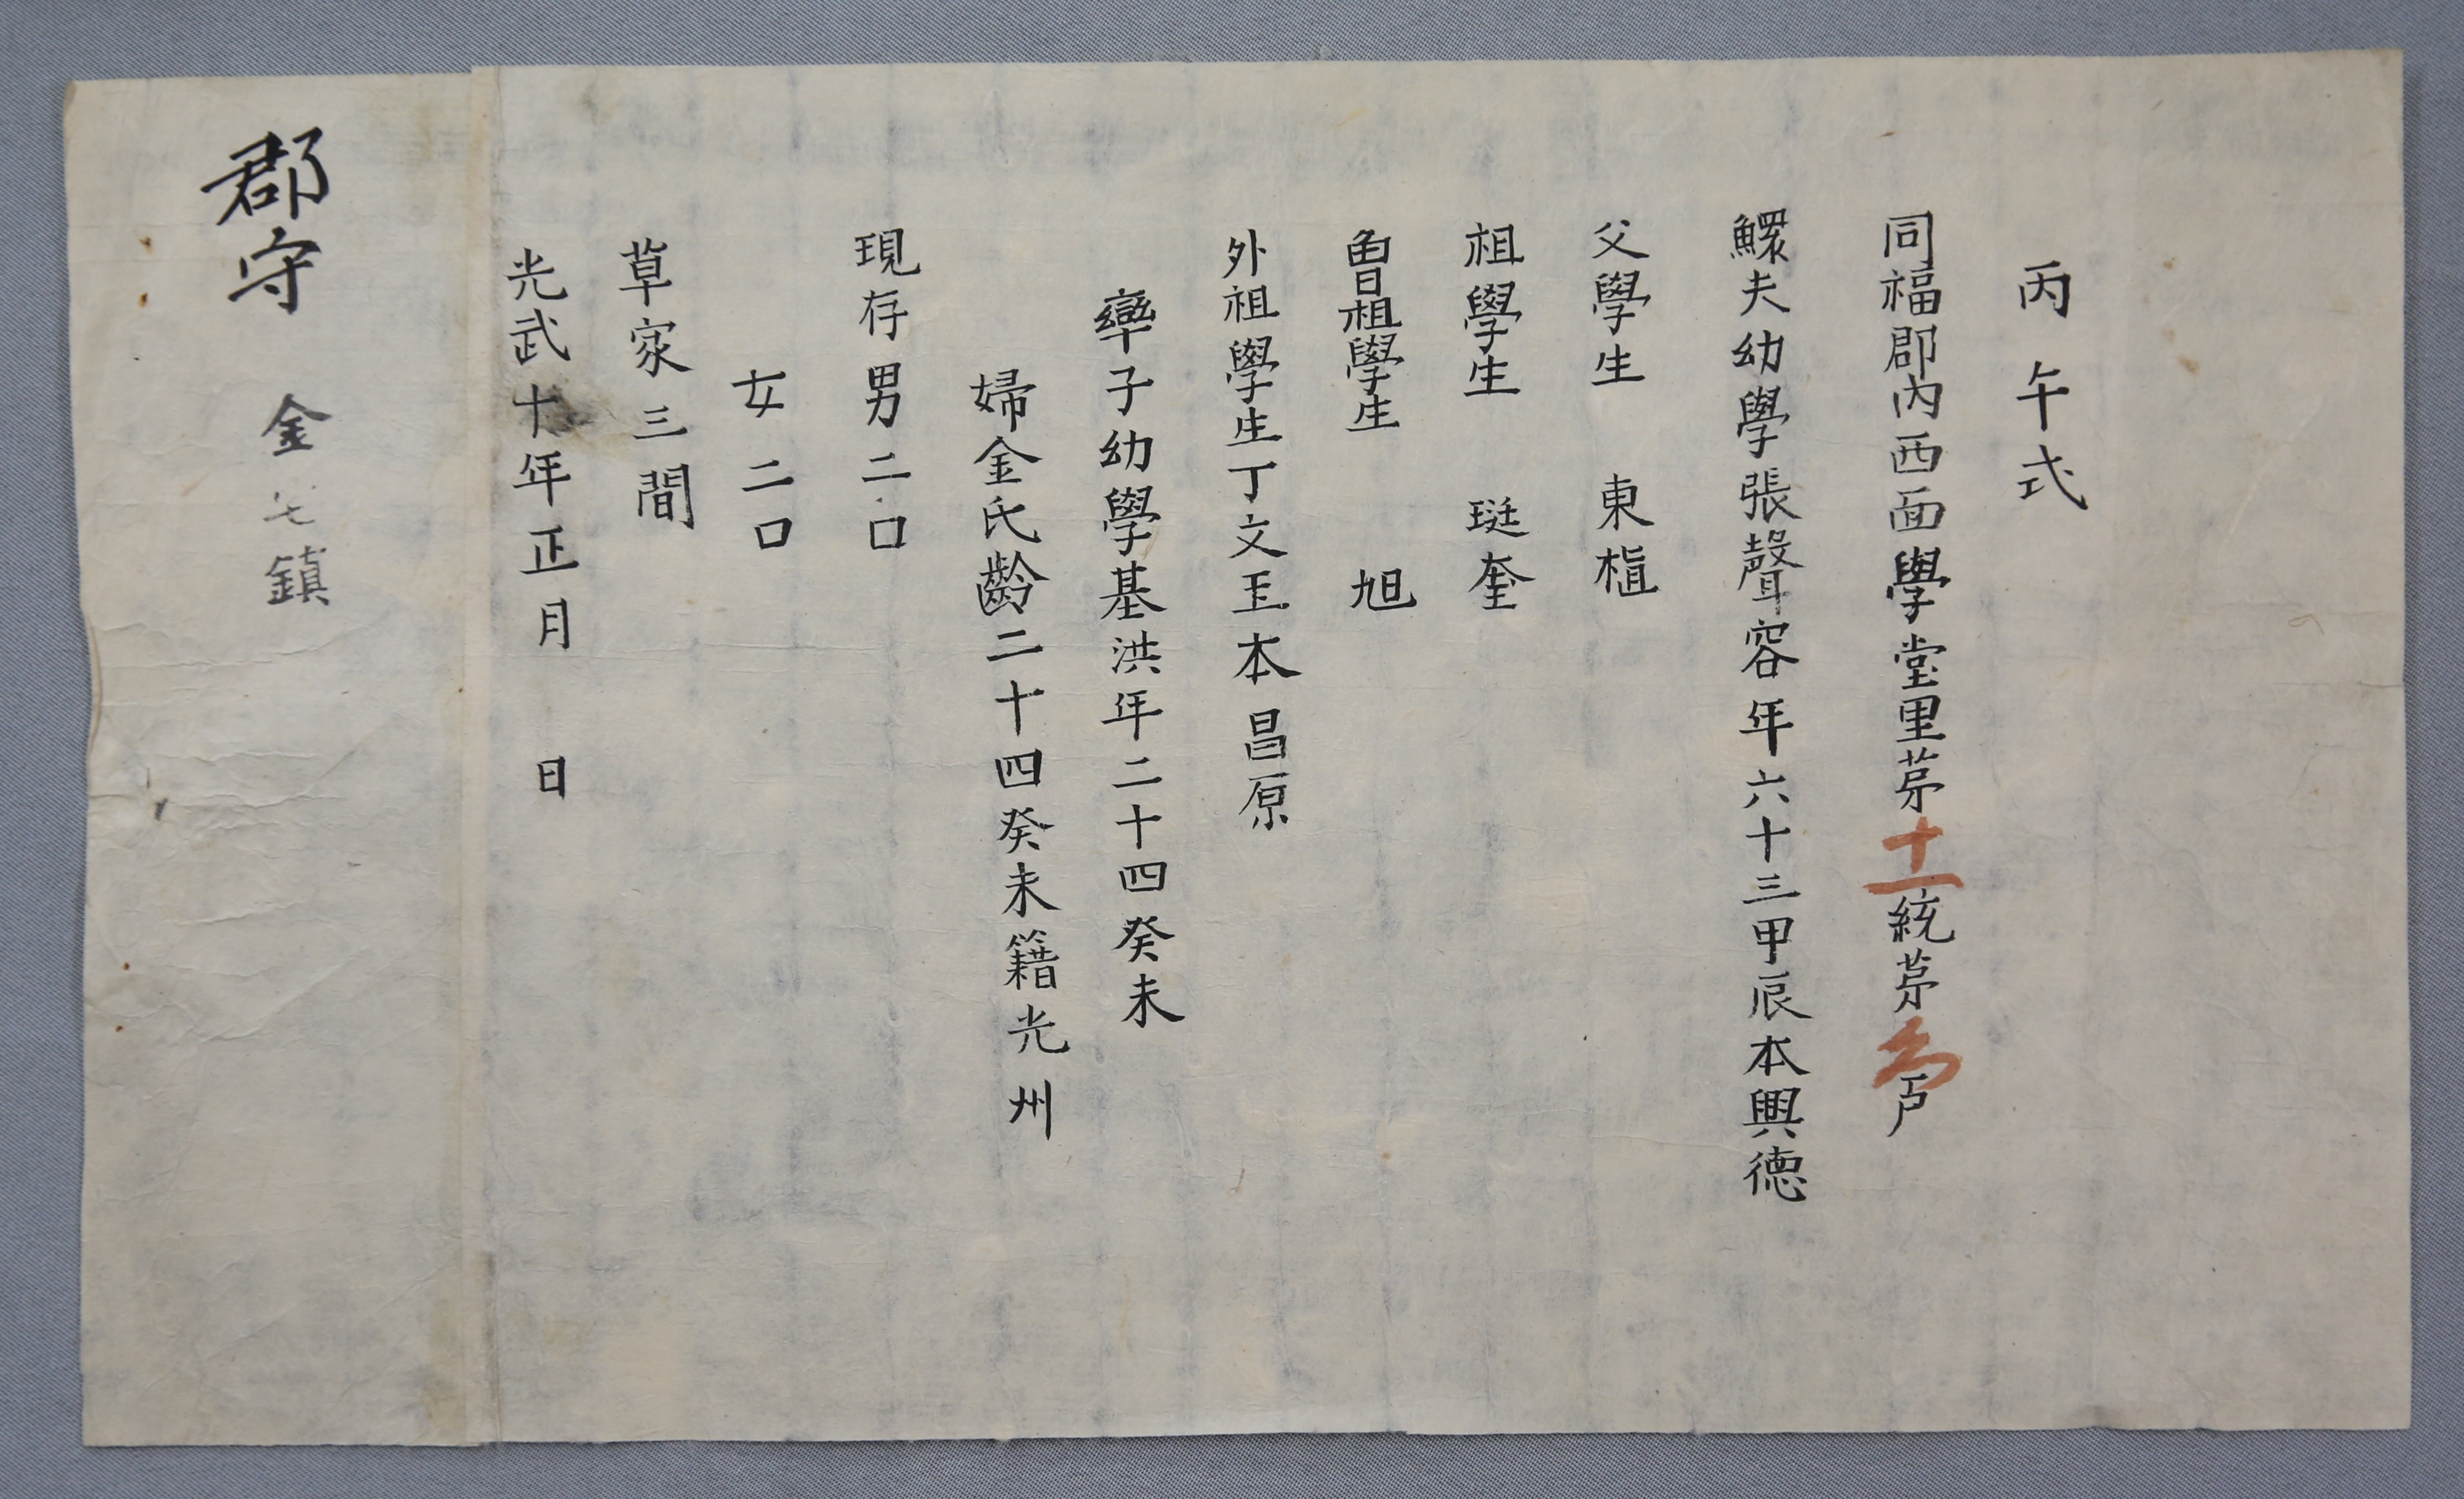 丙午式
同福郡內西面學堂里苐十一統苐 戶
鰥夫幼學張聲容年六十三甲辰本興德
父學生 東植
祖學生 珽奎
曾祖學生 旭
外祖學生丁文玉本昌原
率子幼學基洪年二十四癸未
婦金氏齡二十四癸未籍光州
現存男二口
女二口
草家三間
光武十年正月 日
郡守 金 鎮